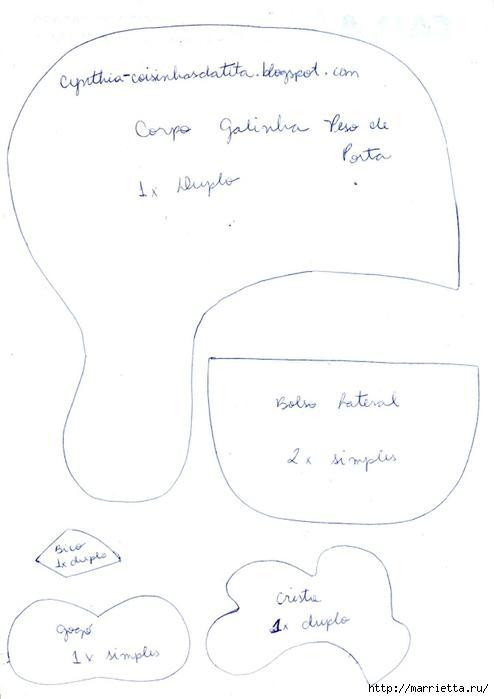 cynthia-coisinhasdatita.blogspot.com
Corpo Galinha Peso de
Porta
1x Duplo
Bolso Lateral
2x simples
Bico
1x duplo
Crista
1x duplo
gogó
1x simples
http://marrietta.ru/